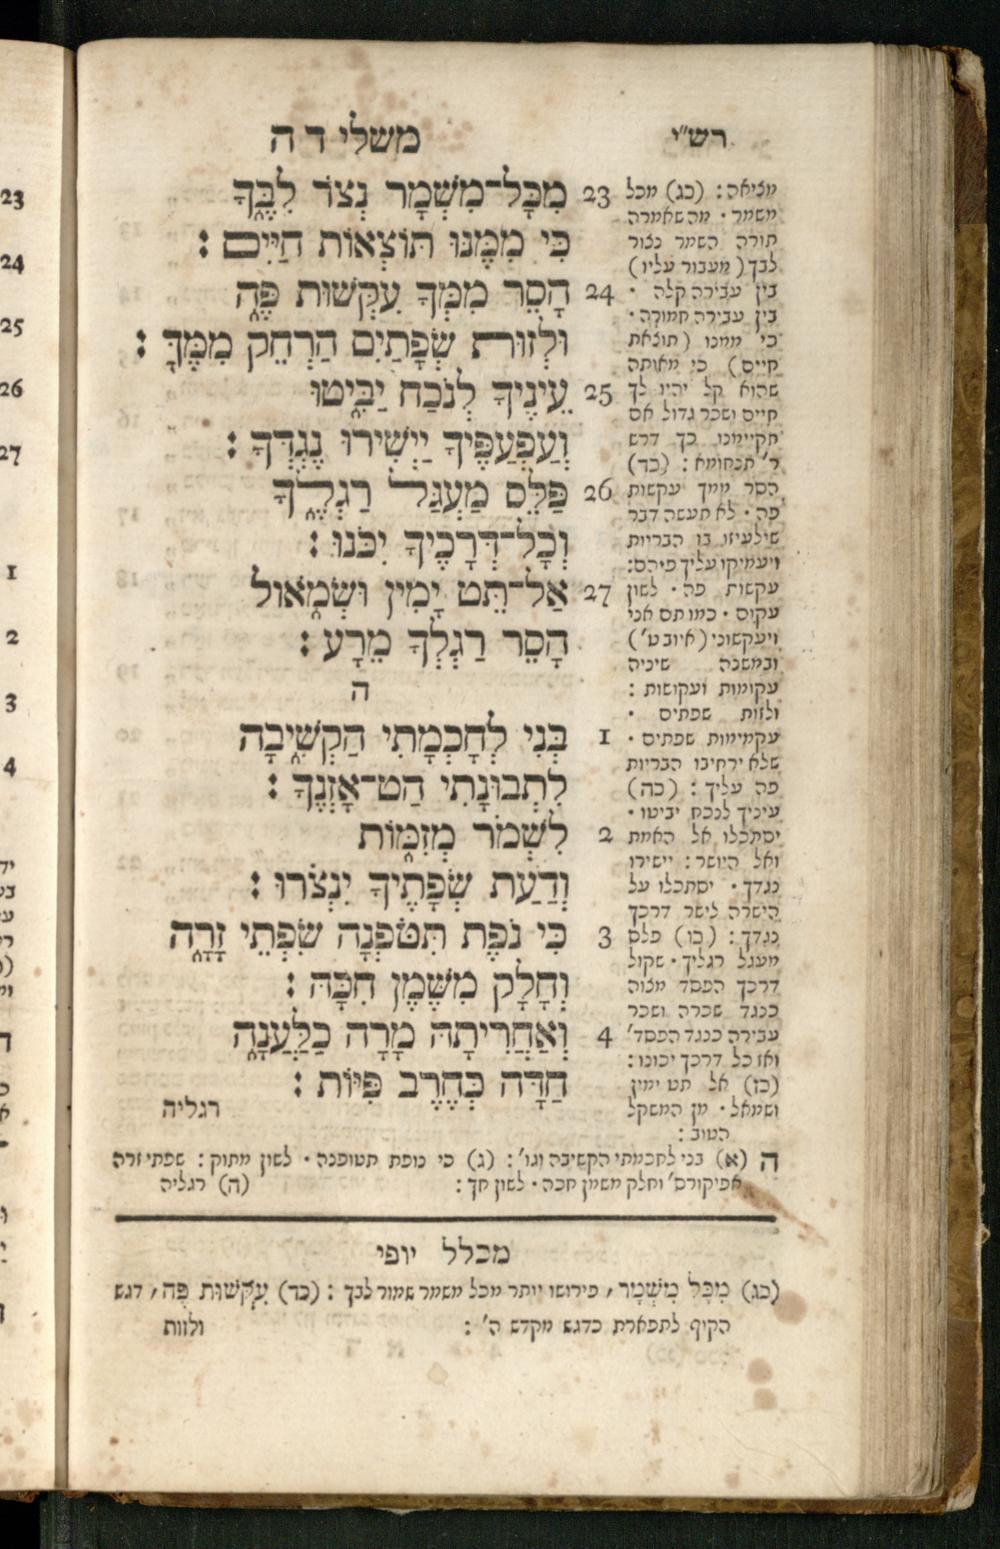 רש״י
משלי ד ה
23 מִכָּל־מִשְׁמָר נְצֹר לִבֶּ֑ךָ
כִּי מִמֶּנּוּ תּוֹצְאוֹת חַיִּים :
24 הָסֵר מִמְּךָ עִקְּשׁוּת פֶּ֑ה
וּלְזוּת שְׂפָתַיִם הַרְחֵק מִמֶּךָּ :
25 עֵינֶיךָ לְנֹכַח יַבִּ֑יטוּ
וְעַפְעַפֶּיךָ יַיְשִׁירוּ נֶגְדֶּךָ :
26 פַּלֵּס מַעְגַּל רַגְלֶ֑ךָ
וְכָל־דְּרָכֶיךָ יִכֹּנוּ :
27 אַל־תֵּט יָמִין וּשְׂמֹ֑אול
הָסֵר רַגְלְךָ מֵרָע :
ה
1 בְּנִי לְחָכְמָתִי הַקְשִׁ֑יבָה
לִתְבוּנָתִי הַט־אָזְנֶךָ :
2 לִשְׁמֹר מְזִמּ֑וֹת
וְדַעַת שְׂפָתֶיךָ יִנְצֹרוּ :
3 כִּי נֹפֶת תִּטֹּפְנָה שִׂפְתֵי זָרָ֑ה
וְחָלָק מִשֶּׁמֶן חִכָּהּ :
4 וְאַחֲרִיתָהּ מָרָה כַלַּעֲנָ֑ה
חַדָּה כְּחֶרֶב פִּיּוֹת :
רגליה
מציאה : (כג) מכל
משמר · מה שאמרה
תורה השמר נצור
לבך ( מעבור עליו )
בין עבירה קלה ·
בין עבירה חמורה ·
כי ממנו ( תוצאת
חיים ) כי מאותה
שהוא קל יהיו לך
חיים ושכר גדול אם
תקיימנו כך דרש
ר' תנחומא : (כד)
הסר ממך עקשות
פה · לא תעשה דבר
שילעיזו בו הבריות
ויעמיקו עליך פיהם :
עקשות פה · לשון
עקום · כמו תם אני
ויעקשוני ( איוב ט' )
ובמשנה שיניה
עקומות ועקושות :
ולזות שפתים ·
עקמימות שפתים ·
שלא ירחיבו הבריות
פה עליך : (כה)
עיניך לנכח יביטו ·
יסתכלו אל האמת
ואל היושר : יישירו
נגדך · יסתכלו על
הישרה לישר דרכך
נגדך : (כו) פלס
מעגל רגליך · שקול
דרכך הפסד מצוה
כנגד שכרה ושכר
עבירה כנגד הפסד'
ואז כל דרכך יכונו :
(כז) אל תט ימין
ושמאל · מן המשקל
הטוב :
ה (א) בני לחכמתי הקשיבה וגו' : (ג) כי נופת תטופנה · לשון מתוק : שפתי זרה
אפיקורס' וחלק משמן חכה · לשון חך : (ה) רגליה
מכלל יופי
(כג) מִכָּל מִשְׁמָר , פירושו יותר מכל משמר שמור לבך : (כד) עִקְּשׁוּת פֶּה , דגש
הקוף לתפארת כדגש מקדש ה' : ולזות
23
24
25
26
27
1
2
3
4